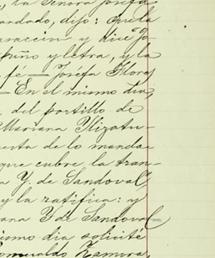 la Señora Josefa
andado, dijo: que la
anacion y dice y
puño y letra, y la
fé — Josefa Flores
— En el mismo dia
del portillo de
Mariana Yizatu-
esta de lo manda-
que cubre la tran-
a Y. de Sandoval,
y la ratifica: y
ana Y de Sandoval
ismo dia solicité
omualdo Zamora,